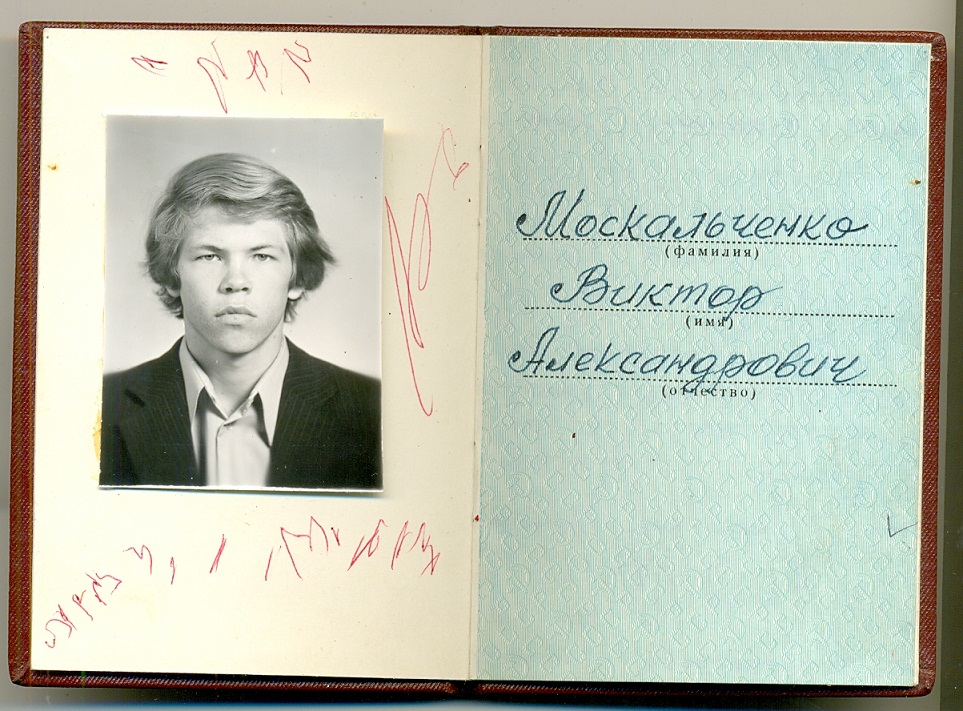 Москальченко
(фамилия)
Виктор
(имя)
Александрович
(отчество)